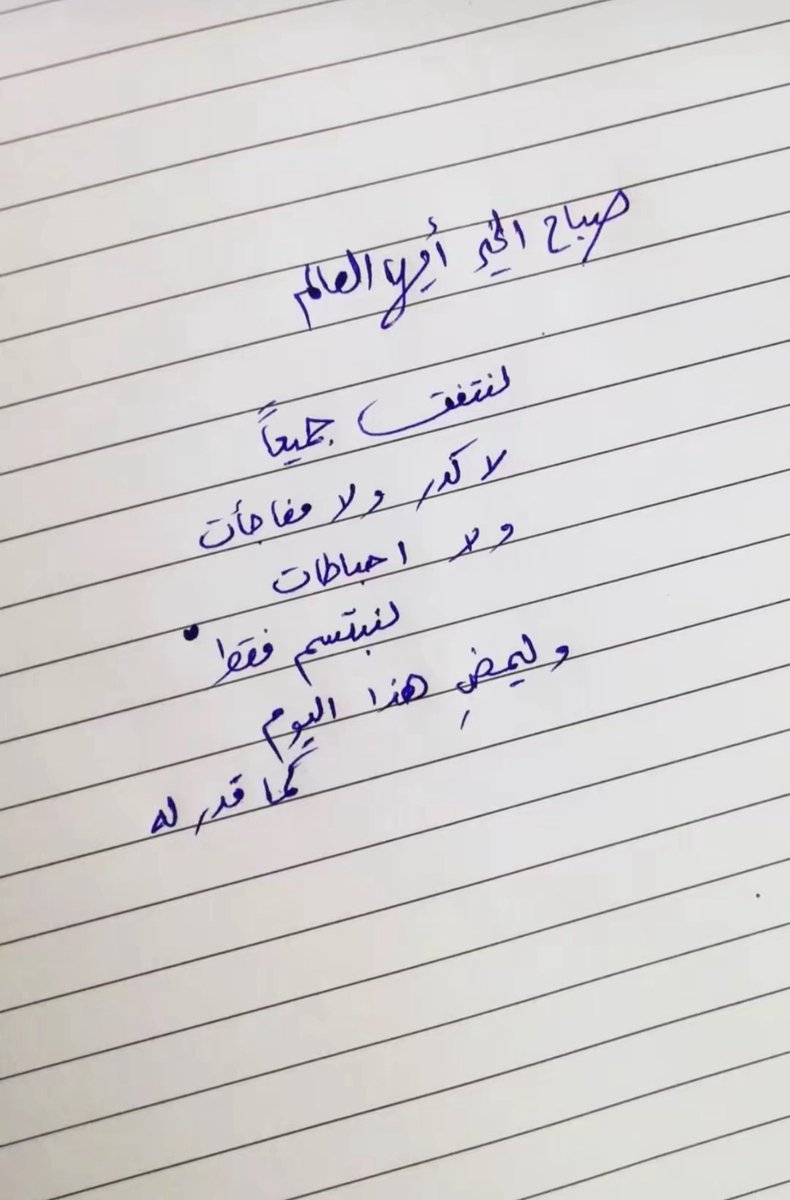 صباح الخير أيها العالم
لنتفق جميعاً
لا كدر ولا مفاجأت
ولا احباطات
لنبتسم فقط
وليمضِ هذا اليوم
كما قدر له